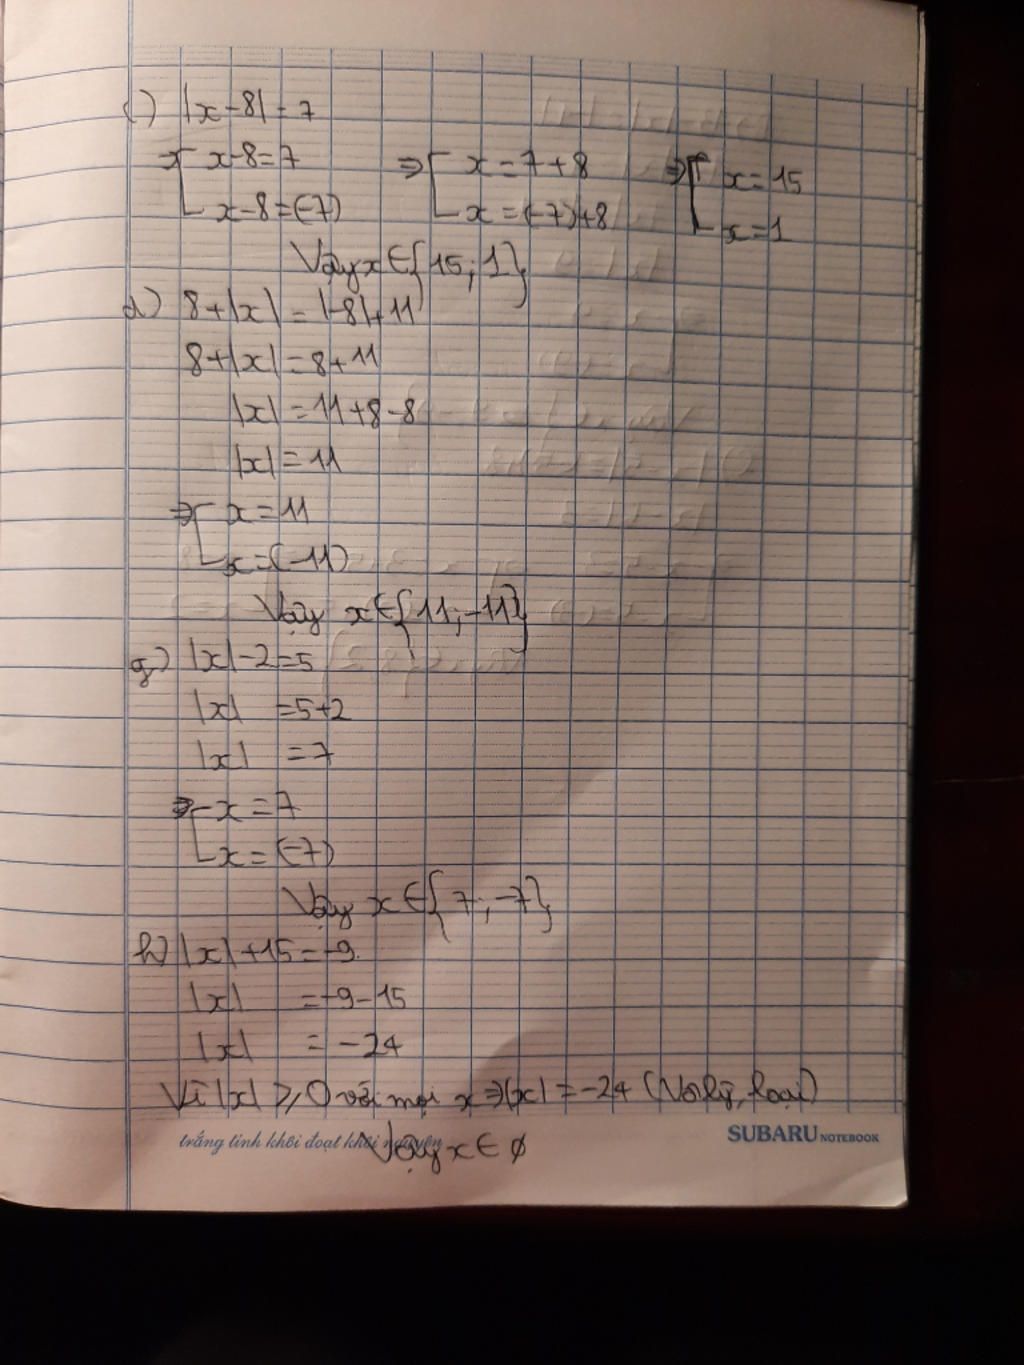 c) |x-8| = 7
⇒[ x-8=7 ⇒[ x=7+8 ⇒[ x=15
x-8=(-7) x=(-7)+8 x=1
Vậy x∈{15;1}
d) 8+|x| = |-8|+11
8+|x| = 8+11
|x| = 11+8-8
|x| = 11
⇒[ x=11
x=(-11)
Vậy x∈{11;-11}
g) |x|-2=5
|x| =5+2
|x| =7
⇒[ x=7
x=(-7)
Vậy x∈{7;-7}
h) |x|+15=-9.
|x| =-9-15
|x| = -24
Vì |x| ≥ 0 với mọi x ⇒|x| = -24 (Vô lý, loại)
trắng tinh khôi đoạt khôi nguyên
SUBARU NOTEBOOK
Vậy x∈ ∅